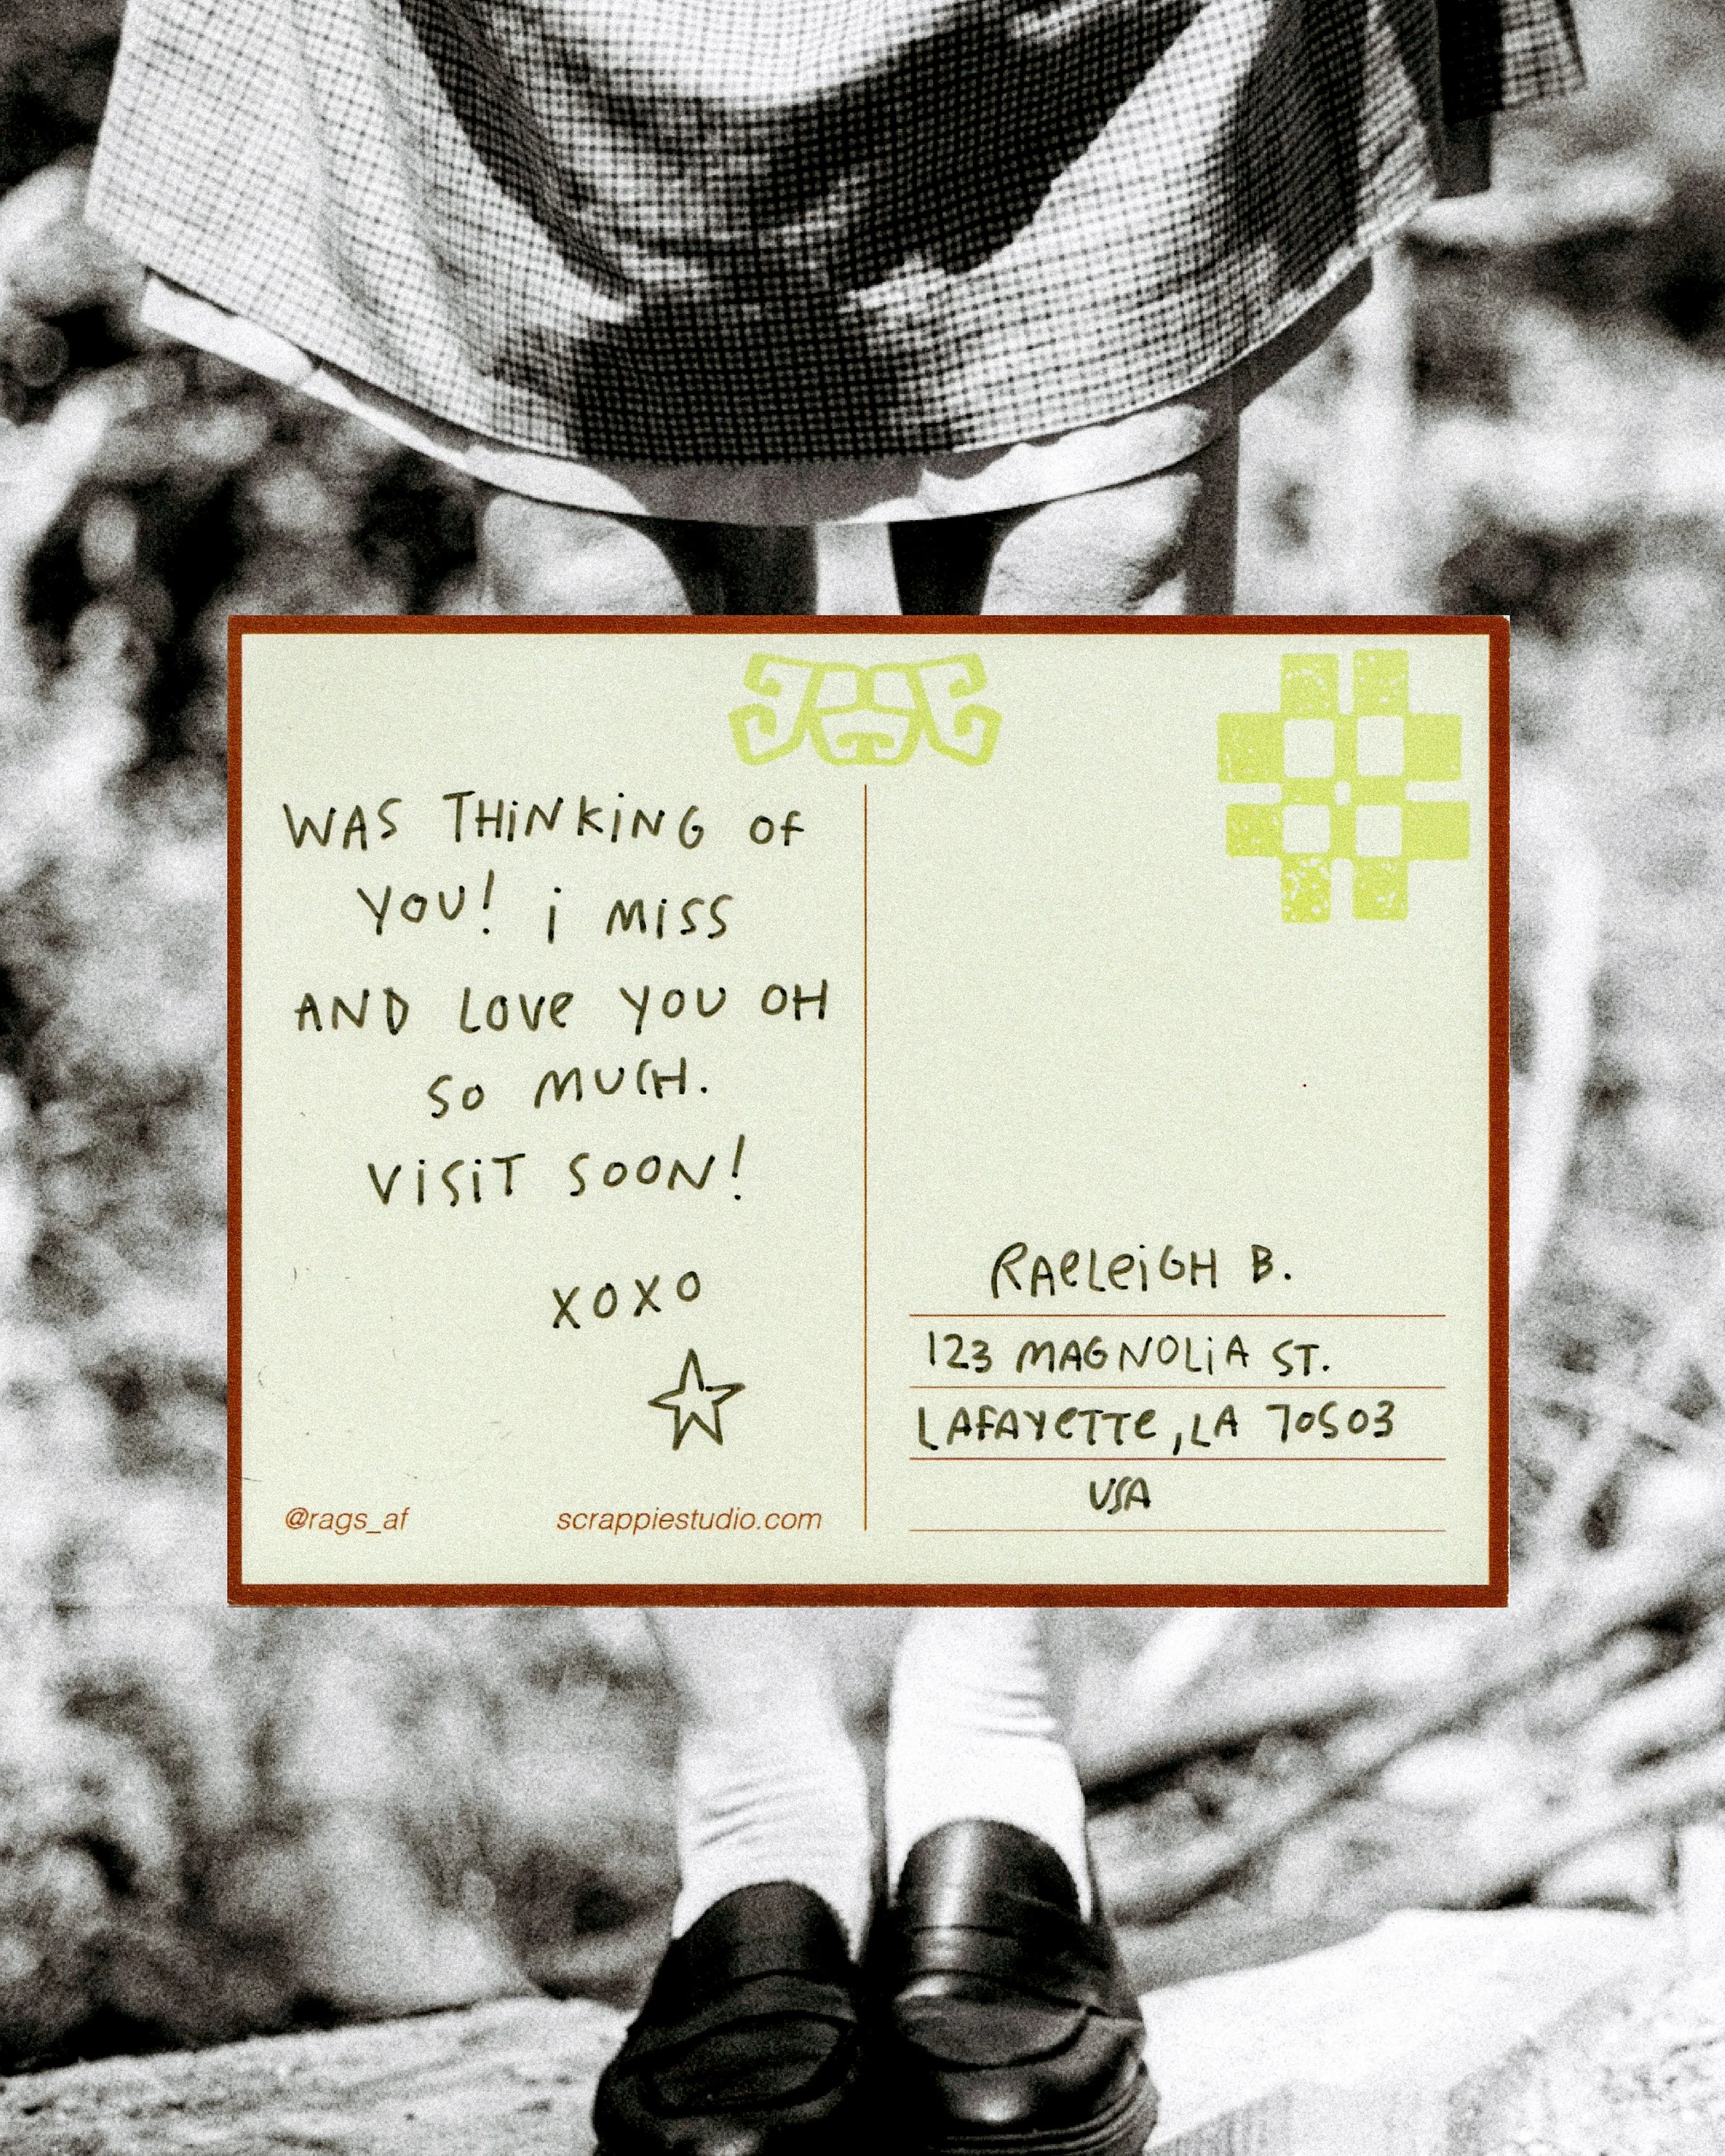 WAS THiNKiNG Of
YOU! i MiSS
AND LOVe YOU OH
SO MUCH.
ViSiT SOON!
XOXO
@rags_af
scrappiestudio.com
RAeLeiGH B.
123 MAGNOLiA ST.
LAfAYeTTe, LA 70503
USA